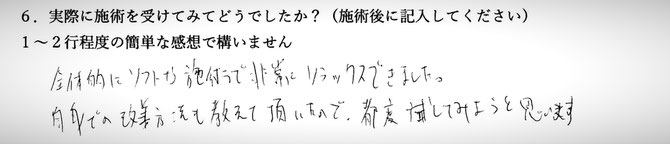 6．実際に施術を受けてみてどうでしたか？（施術後に記入してください）
1～2行程度の簡単な感想で構いません
全体的にソフトな施術で非常にリラックスできました。
自身での改善方法も教えて頂いたので、都度試してみようと思います